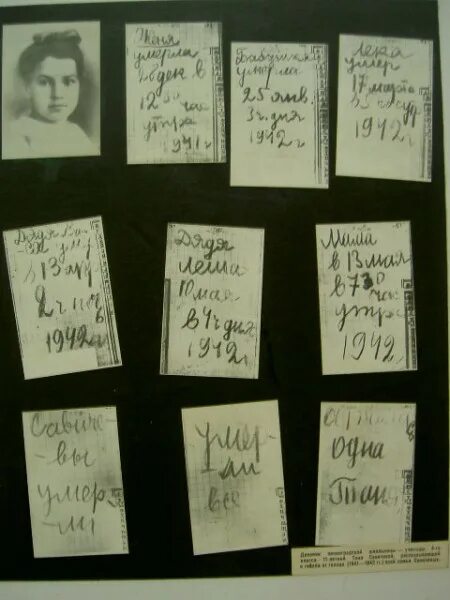 Женя
умерла
28 ден в
12 30 час
утра
1941 г
Бабушка
умерла
25 янв.
3 ч дня
1942 г
Лека
умер
17 марта
1942 г
Дядя Ва
13 апр
2 ч ноч
1942 г
Дядя
Леша
10 мая
в 4 ч дня
1942 г
Мама
в 13 мая
в 7 30
час
утра
1942 г
Савиче-
-вы
умер-
ли
умер-
ли
все
Осталась
одна
Таня
Дневник ленинградской школьницы — ученицы
класса 11-летней Тани Савичевой,
о гибели от голода (1941—1942 гг.) всей семьи Савичевых.